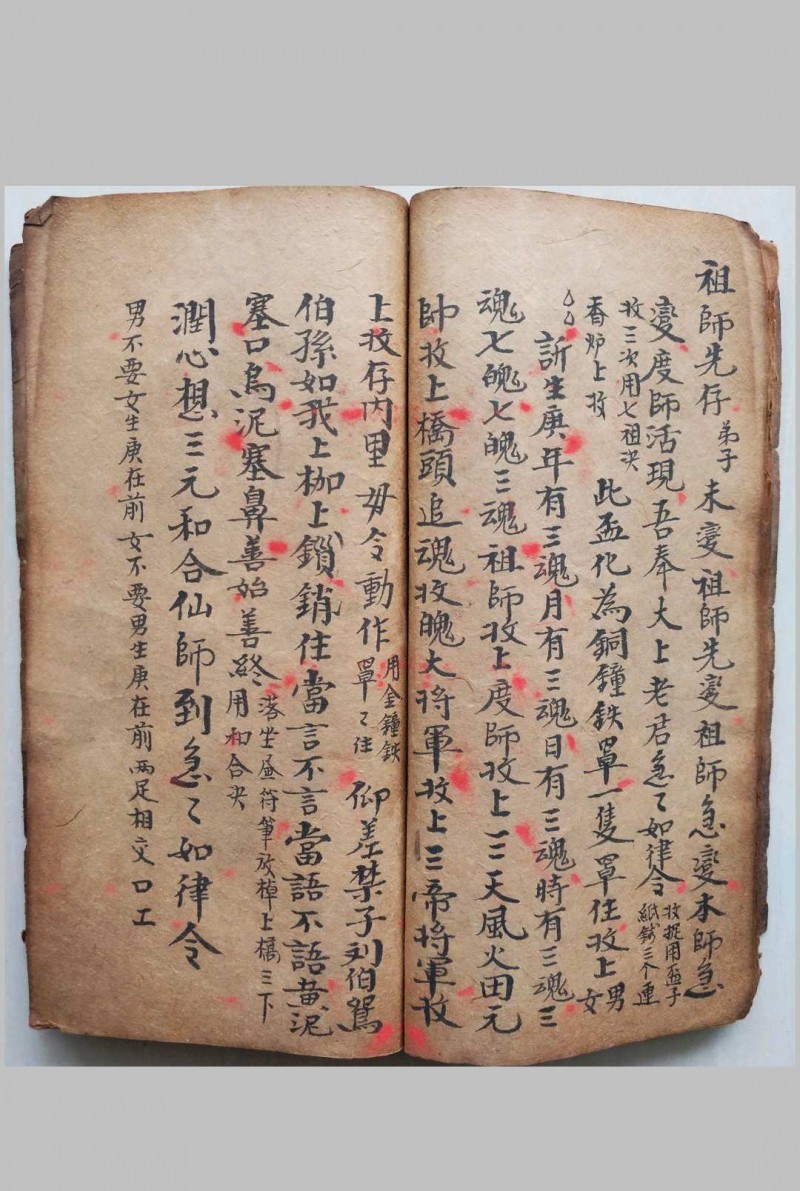 祖師先存弟子未变祖師先变祖師急变本師急
变度師活現吾奉太上老君急々如律令收捉用盃子紙錢三个連
收三次用七祖决
香炉上收
此盃化為銅鐘鉄罩一隻罩住收上男女
訢生庚年有三魂月有三魂日有三魂時有三魂三
魂七魄七魄三魂祖師收上度師收上三天風火田元
帥收上橋頭追魂收魄大将軍收上三帝将軍收
上收存内里毋令動作用金鐘鉄罩々住仰差禁子列伯鴛
伯孫如我上枷上鎖銷住當言不言當語不語黄泥
塞口烏泥塞鼻善始善終用和合决落坐昼符筆放棹上橋三下
潤心想三元和合仙師到急々如律令
男不要女生庚在前女不要男生庚在前两足相交口工